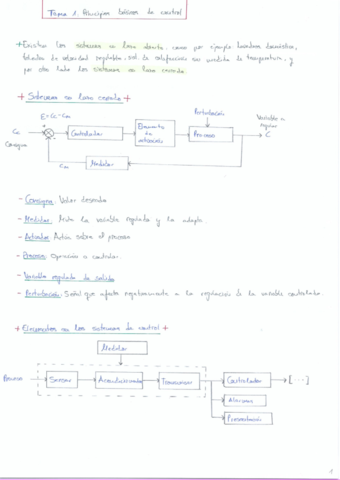 Tema 1. Principios básicos de control
+ Existen los sistemas en lazo abierto, como por ejemplo lavadora doméstica,
de velocidad regulable, sist. de calefacción sin medida de temperatura, y
por otro lado los sistemas en lazo cerrado.
+ Sistemas en lazo cerrado +
Perturbación
Variable a
regular
E = Cc - Cm
Cc
Consigna
+
-
Controlador
Elemento
de
actuación
Proceso
C
Cm
Medidor
- Consigna: Valor deseado
- Medidor: Mide la variable regulada y la adapta.
- Actuador: Actúa sobre el proceso
- Proceso: Operación a controlar.
- Variable regulada de salida
- Perturbación: Señal que afecta negativamente a la regulación de la variable controlada.
+ Elementos en los sistemas de control +
Medidor
Proceso
Sensar
Acondicionador
Transmisor
Controlador
[...]
Alarmas
Presentación
1